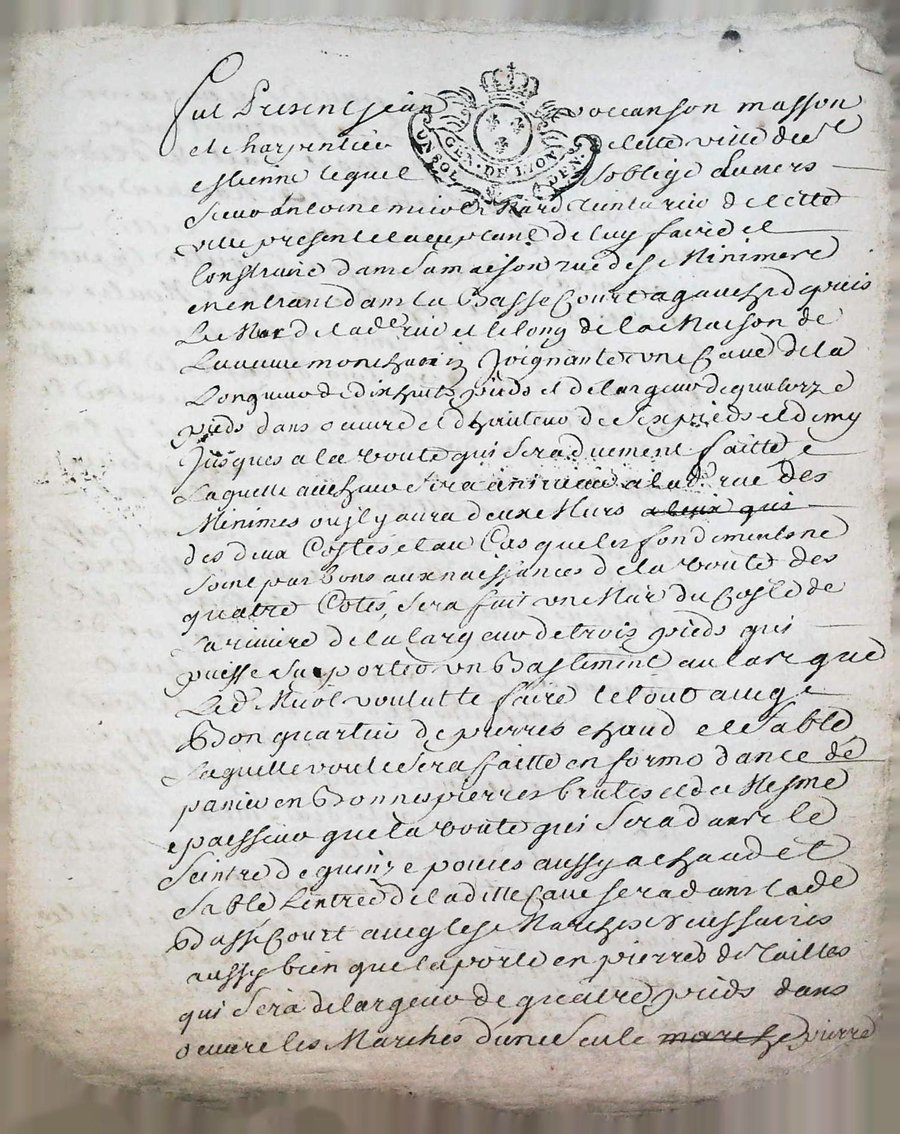 fut Present jean vocanson masson
et charpentier de cette ville de St
estienne lequel s'oblige Envers
Sieur antoine miol Mard teinturier de cette
ville present et aceptant de luy faire et
Construire dans Sa maison rue des Minimes
en entrant dans la Basse Court a gauche depuis
Le Mur de la de rue et le long de la Maison de
La veuve joignante une Cave de la
Longueur de dixhuit pieds et de largeur de quatorze
pieds dans oeuvre et d'hauteur de Six pieds et demy
Jusques a la voute qui Sera duement faitte
Laquelle a la de rue des
Minimes ou jl y aura deux Murs
des deux Costés et au Cas que les fondements ne
Soint pas bons aux naissances de la voute des
quatre Cotés, Sera fait un Mur du Costé de
La riviere de la largeur de trois pieds qui
puisse Suporter un Bastiment au Cas que
Le dt Miol voulut le faire le tout avec
Bon quartier de pierres chaud et Sable
Laquelle voute Sera faitte en forme d'ance de
panier en Bonnes pierres brutes et de Mesme
epaisseur que la voute qui Sera dans le
Seintre de quinze pouces aussy a chaud et
Sable L'entrée de la ditte Cave sera dans la de
Basse Court avec les Marches necessaires
aussy bien que la porte en pierres de Tailles
qui Sera de largeur de quatre pieds dans
oeuvre les Marches d'une Seule marche pierre
GEN. DE LION
UN SOL
DEN.